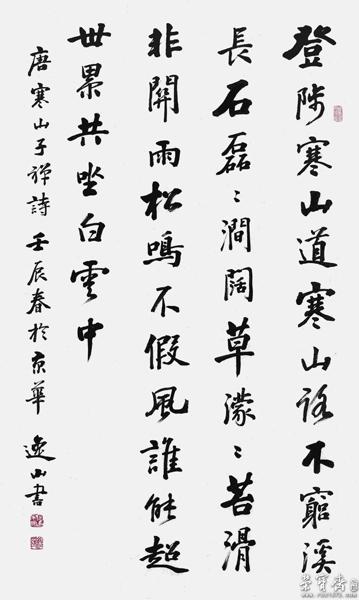 登陟寒山道寒山路不窮溪
長石磊〻澗闊草濛〻苔滑
非關雨松鳴不假風誰能超
世累共坐白雲中
唐寒山子禪詩 壬辰春於京華 逸山書
荣宝斋